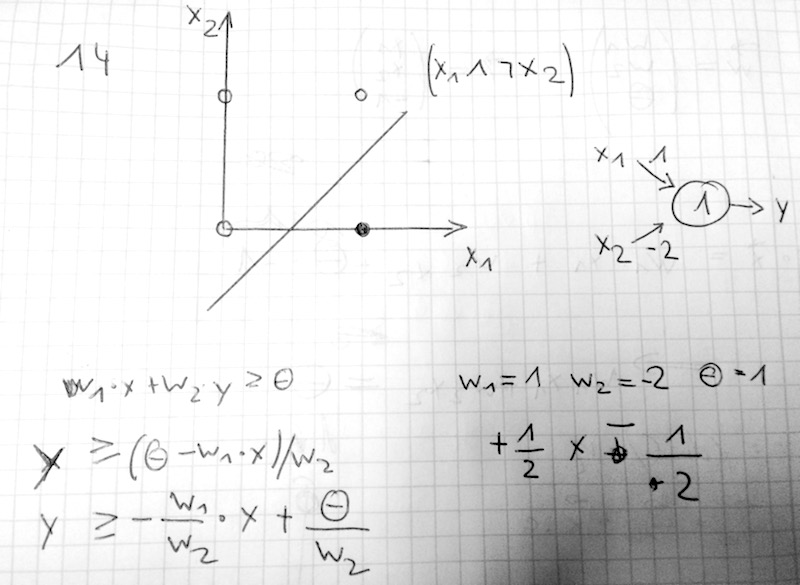 14
x₂
(x₁ ∧ ¬x₂)
x₁
x₁ 1
1 → y
x₂ -2
w₁·x + w₂·y ≥ Θ
y ≥ (Θ - w₁·x)/w₂
y ≥ - w₁/w₂ · x + Θ/w₂
w₁ = 1 w₂ = -2 Θ = 1
+ 1/2 x - 1/2